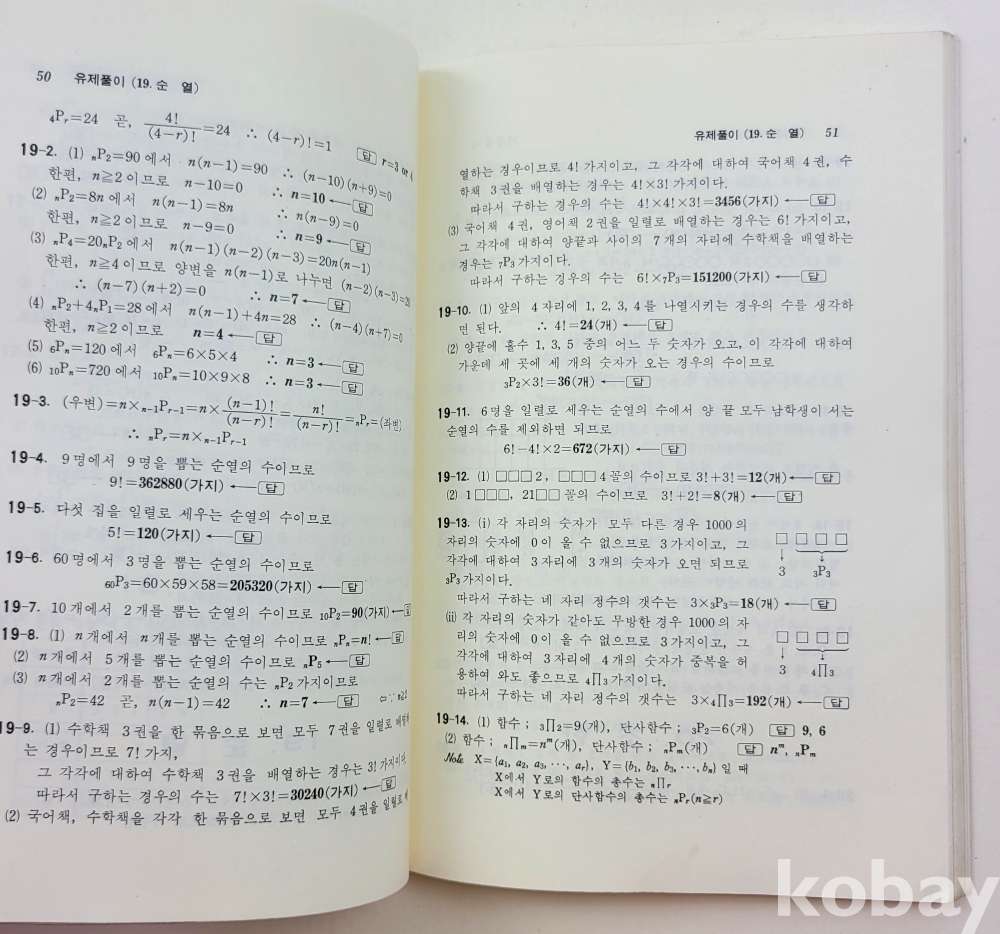 50 유제풀이 (19. 순 열)
₄Pᵣ=24 곧, 4!/(4−r)!=24 ∴ (4−r)!=1 답 r=3 or 4
19-2. (1) ₙP₂=90에서 n(n−1)=90 ∴ (n−10)(n+9)=0
한편, n≧2이므로 n−10=0 ∴ n=10 ← 답
(2) ₙP₂=8n에서 n(n−1)=8n ∴ n(n−9)=0
한편, n≧2이므로 n−9=0 ∴ n=9 ← 답
(3) ₙP₄=20ₙP₂에서 n(n−1)(n−2)(n−3)=20n(n−1)
한편, n≧4이므로 양변을 n(n−1)로 나누면 (n−2)(n−3)=20
∴ (n−7)(n+2)=0 ∴ n=7 ← 답
(4) ₙP₂+4ₙP₁=28에서 n(n−1)+4n=28 ∴ (n−4)(n+7)=0
한편, n≧2이므로 n=4 ← 답
(5) ₆Pₙ=120에서 ₆Pₙ=6×5×4 ∴ n=3 ← 답
(6) ₁₀Pₙ=720에서 ₁₀Pₙ=10×9×8 ∴ n=3 ← 답
19-3. (우변)=n×ₙ₋₁Pᵣ₋₁=n×(n−1)!/(n−r)!=n!/(n−r)!=ₙPᵣ=(좌변)
∴ ₙPᵣ=n×ₙ₋₁Pᵣ₋₁
19-4. 9명에서 9명을 뽑는 순열의 수이므로
9!=362880(가지) ← 답
19-5. 다섯 집을 일렬로 세우는 순열의 수이므로
5!=120(가지) ← 답
19-6. 60명에서 3명을 뽑는 순열의 수이므로
₆₀P₃=60×59×58=205320(가지) ← 답
19-7. 10개에서 2개를 뽑는 순열의 수이므로 ₁₀P₂=90(가지) ← 답
19-8. (1) n개에서 n개를 뽑는 순열의 수이므로 ₙPₙ=n! ← 답
(2) n개에서 5개를 뽑는 순열의 수이므로 ₙP₅ ← 답
(3) n개에서 2개를 뽑는 순열의 수는 ₙP₂가지이므로
ₙP₂=42 곧, n(n−1)=42 ∴ n=7 ← 답 ⇦∵ n≧2
19-9. (1) 수학책 3권을 한 묶음으로 보면 모두 7권을 일렬로 배열하
는 경우이므로 7! 가지,
그 각각에 대하여 수학책 3권을 배열하는 경우는 3! 가지이다.
따라서 구하는 경우의 수는 7!×3!=30240(가지) ← 답
(2) 국어책, 수학책을 각각 한 묶음으로 보면 모두 4권을 일렬로
유제풀이 (19. 순 열) 51
열하는 경우이므로 4! 가지이고, 그 각각에 대하여 국어책 4권, 수
학책 3권을 배열하는 경우는 4!×3! 가지이다.
따라서 구하는 경우의 수는 4!×4!×3!=3456(가지) ← 답
(3) 국어책 4권, 영어책 2권을 일렬로 배열하는 경우는 6! 가지이고,
그 각각에 대하여 양끝과 사이의 7개의 자리에 수학책을 배열하는
경우는 ₇P₃가지이다.
따라서 구하는 경우의 수는 6!×₇P₃=151200(가지) ← 답
19-10. (1) 앞의 4자리에 1, 2, 3, 4를 나열시키는 경우의 수를 생각하
면 된다. ∴ 4!=24(개) ← 답
(2) 양끝에 홀수 1, 3, 5 중의 어느 두 숫자가 오고, 이 각각에 대하여
가운데 세 곳에 세 개의 숫자가 오는 경우의 수이므로
₃P₂×3!=36(개) ← 답
19-11. 6명을 일렬로 세우는 순열의 수에서 양 끝 모두 남학생이 서는
순열의 수를 제외하면 되므로
6!−4!×2=672(가지) ← 답
19-12. (1) □□□2, □□□4 꼴의 수이므로 3!+3!=12(개) ← 답
(2) 1□□□, 21□□ 꼴의 수이므로 3!+2!=8(개) ← 답
19-13. (i) 각 자리의 숫자가 모두 다른 경우 1000의
자리의 숫자에 0이 올 수 없으므로 3가지이고, 그
각각에 대하여 3자리에 3개의 숫자가 오면 되므로
₃P₃가지이다.
□ □ □ □
↓ ↓
3 ₃P₃
따라서 구하는 네 자리 정수의 갯수는 3×₃P₃=18(개) ← 답
(ii) 각 자리의 숫자가 같아도 무방한 경우 1000의 자
리의 숫자에 0이 올 수 없으므로 3가지이고, 그
각각에 대하여 3자리에 4개의 숫자가 중복을 허
용하여 와도 좋으므로 ₄∏₃가지이다.
□ □ □ □
↓ ↓
3 ₄∏₃
따라서 구하는 네 자리 정수의 갯수는 3×₄∏₃=192(개) ← 답
19-14. (1) 함수 ; ₃∏₂=9(개), 단사함수 ; ₃P₂=6(개) 답 9, 6
(2) 함수 ; ₙ∏ₘ=nᵐ(개), 단사함수 ; ₙPₘ(개) 답 nᵐ, ₙPₘ
Note X={a₁, a₂, a₃, ⋯, aᵣ}, Y={b₁, b₂, b₃, ⋯, bₙ}일 때
X에서 Y로의 함수의 총수는 ₙ∏ᵣ
X에서 Y로의 단사함수의 총수는 ₙPᵣ(n≧r)
kobay